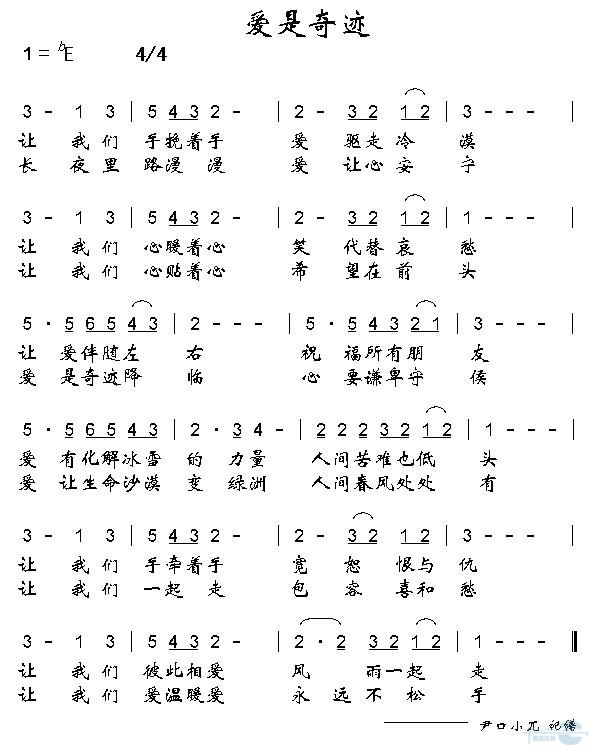 爱是奇迹
1= ᵇE 4/4
3 - 1 3 | 5 4 3 2 - | 2 - 3 2 1 2 | 3 - - - |
让 我们 手挽着手 爱 驱走冷 漠
长 夜里 路漫 漫 爱 让心安 宁
3 - 1 3 | 5 4 3 2 - | 2 - 3 2 1 2 | 1 - - - |
让 我们 心暖着心 笑 代替哀 愁
让 我们 心贴着心 希 望在前 头
5 · 5 6 5 4 3 | 2 - - - | 5 · 5 4 3 2 1 | 3 - - - |
让 爱伴随左 右 祝 福所有朋 友
爱 是奇迹降 临 心 要谦卑守 候
5 · 5 6 5 4 3 | 2 · 3 4 - | 2 2 2 3 2 1 2 | 2 - - - |
爱 有化解冰雪 的 力量 人间苦难也低 头
爱 让生命沙漠 变 绿洲 人间春风处处 有
3 - 1 3 | 5 4 3 2 - | 2 - 3 2 1 2 | 3 - - - |
让 我们 手牵着手 宽 恕 恨与仇
让 我们 一起 走 包 容 喜和愁
3 - 1 3 | 5 4 3 2 - | 2 · 2 3 2 2 1 | 1 - - - ‖
让 我们 彼此相爱 风 雨一起 走
让 我们 爱温暖爱 永 远不松 手
尹口小兀 记谱